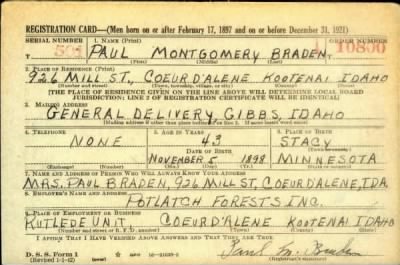 REGISTRATION CARD—(Men born on or after February 17, 1897 and on or before December 31, 1921)
SERIAL NUMBER 1. NAME (Print) ORDER NUMBER
501 PAUL MONTGOMERY BRADEN 10800
(First) (Middle) (Last)
2. PLACE OF RESIDENCE (Print)
926 MILL ST., COEUR D'ALENE KOOTENAI IDAHO
(Number and street) (Town, township, village, or city) (County) (State)
[THE PLACE OF RESIDENCE GIVEN ON THE LINE ABOVE WILL DETERMINE LOCAL BOARD
JURISDICTION; LINE 2 OF REGISTRATION CERTIFICATE WILL BE IDENTICAL]
3. MAILING ADDRESS
GENERAL DELIVERY, GIBBS, IDAHO
[Mailing address if other than place indicated on line 2. If same insert word same]
4. TELEPHONE 5. AGE IN YEARS 6. PLACE OF BIRTH
NONE 43 STACY
DATE OF BIRTH
NOVEMBER 5 1898 MINNESOTA
(Exchange) (Number) (Mo.) (Day) (Yr.) (State or country)
7. NAME AND ADDRESS OF PERSON WHO WILL ALWAYS KNOW YOUR ADDRESS
MRS. PAUL BRADEN, 926 MILL ST, COEUR D'ALENE, IDA.
8. EMPLOYER'S NAME AND ADDRESS
POTLATCH FORESTS INC.
9. PLACE OF EMPLOYMENT OR BUSINESS
RUTLEDE UNIT COEUR D'ALENE KOOTENAI IDAHO
(Number and street or R. F. D. number) (Town) (County) (State)
I AFFIRM THAT I HAVE VERIFIED ABOVE ANSWERS AND THAT THEY ARE TRUE.
D. S. S. Form 1 Paul M. Braden
(Revised 1-1-42)